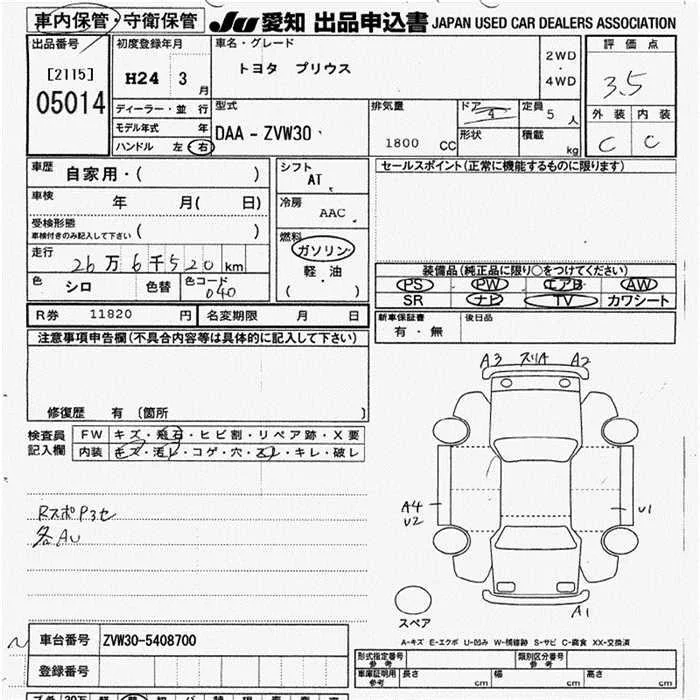 車内保管・守衛保管 JU 愛知 出品申込書 JAPAN USED CAR DEALERS ASSOCIATION
出品番号 初度登録年月 車名・グレード 評価点
[2115] H24 3月 トヨタ プリウス 2WD・4WD 3.5
05014 ディーラー・並行 型式 排気量 ドア 定員 外装 内装
モデル年式 年 DAA-ZVW30 1800 CC 4 5人 C C
ハンドル 左 右 形状 積載 kg
車歴 自家用・( ) シフト AT セールスポイント(正常に機能するものに限ります)
車検 年 月( 日) 冷房 AAC
受検形態 車検付きのみ記入して下さい ( ) 燃料 ガソリン
走行 26万6千520km 軽・油 装備品(純正品に限り○をつけてください)
色 シロ 色替 色コード 040 ( ) PS PW エアB AW
SR ナビ TV カワシート
R券 11820 円 名変期限 月 日 新車保証書 有・無 後日品
注意事項申告欄(不具合内容等は具体的に記入して下さい)
A3 スリA A2
修復歴 有 〔箇所 〕
検査員記入欄 FW キズ・飛石・ヒビ割・リペア跡・X要
内装 キズ・汚レ・コゲ・穴・スレ・キレ・破レ
A4 U2 U1
Rスポ
各AU
スペア A1
A-キズ E-エクボ U-凹み W-補修跡 S-サビ C-腐食 XX-交換済
車台番号 ZVW30-5408700
型式指定番号 参考 類別区分番号 参考
登録番号 車庫証明用 参考 長さ cm 幅 cm 高さ cm